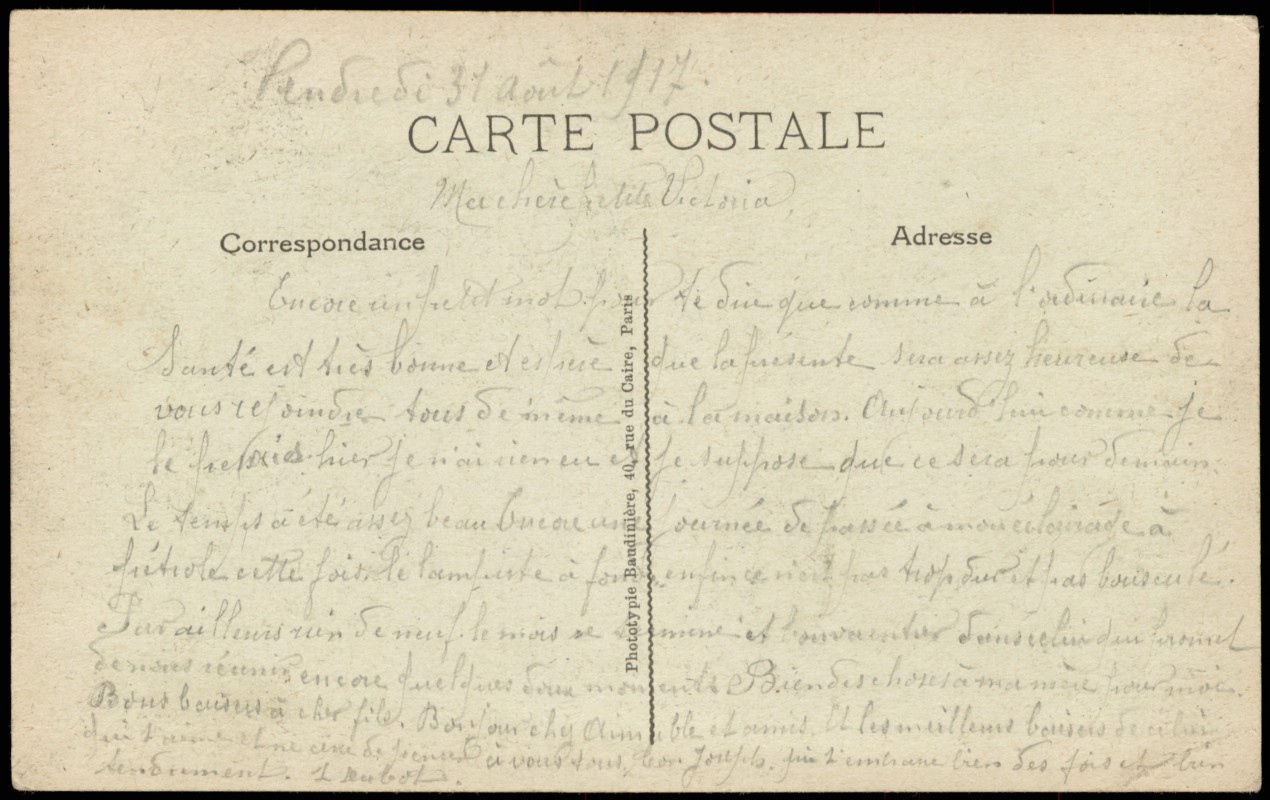 Vendredi 31 Août 1917.
CARTE POSTALE
Ma chère petite Victoria
Correspondance
Adresse
Encore un petit mot pour te dire que comme à l'ordinaire la
Santé est très bonne et espère que la présente sera assez heureuse de
vous rejoindre tous de même à la maison. Aujourd'hui comme je
le pensais hier je n'ai rien eu et je suppose que ce sera pour demain.
Le temps a été assez beau Encore une journée de passée à mon éclairage à
pétrole cette fois. le lampiste à fond, enfin ce n'est pas trop dur et pas bousculé.
Par ailleurs rien de neuf. le mois se termine et l'on va entrer dans celui qui promet
de nous réunir encore quelques doux moments Bien des choses à ma mère pour moi.
Bons baisers à cher fils. Bonjour chez Aimable et amis. Et les meilleurs baisers de celui
qui t'aime et ne cesse de penser à vous tous, ton Joseph. qui t'embrasse bien des fois et bien
tendrement.
Phototypie Baudinière, 40, rue du Caire, Paris